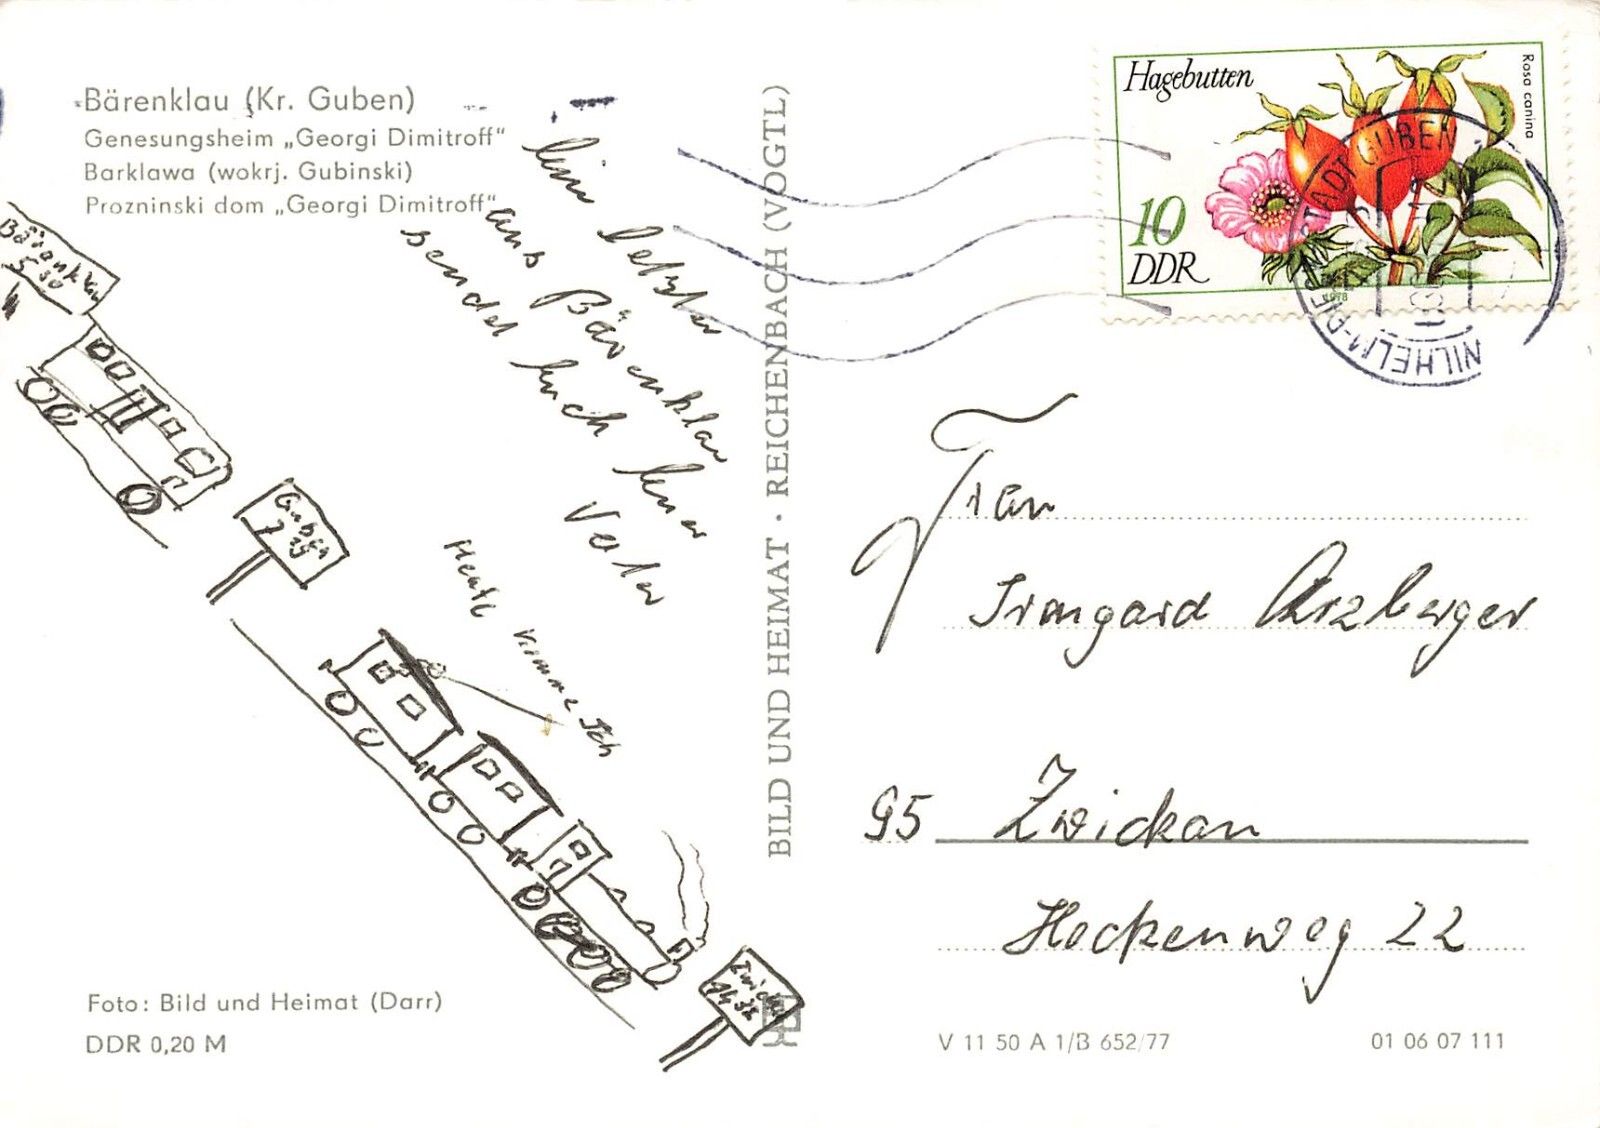 Bärenklau (Kr. Guben)
Genesungsheim „Georgi Dimitroff“
Barklawa (wokrj. Gubinski)
Prozninski dom „Georgi Dimitroff“
letzter
aus Bärenklau
sendet Euch Euer
Vater
Heute komme Ich
Bärenklau
Guben
Zwickau
14 32
BILD UND HEIMAT · REICHENBACH (VOGTL)
Foto: Bild und Heimat (Darr)
DDR 0,20 M
Hagebutten
Rosa canina
10
DDR
1978
STADT GUBEN
WILHELM-PIECK-
Frau
Irmgard Arzberger
95 Zwickau
Heckenweg 22
V 11 50 A 1/B 652/77
01 06 07 111